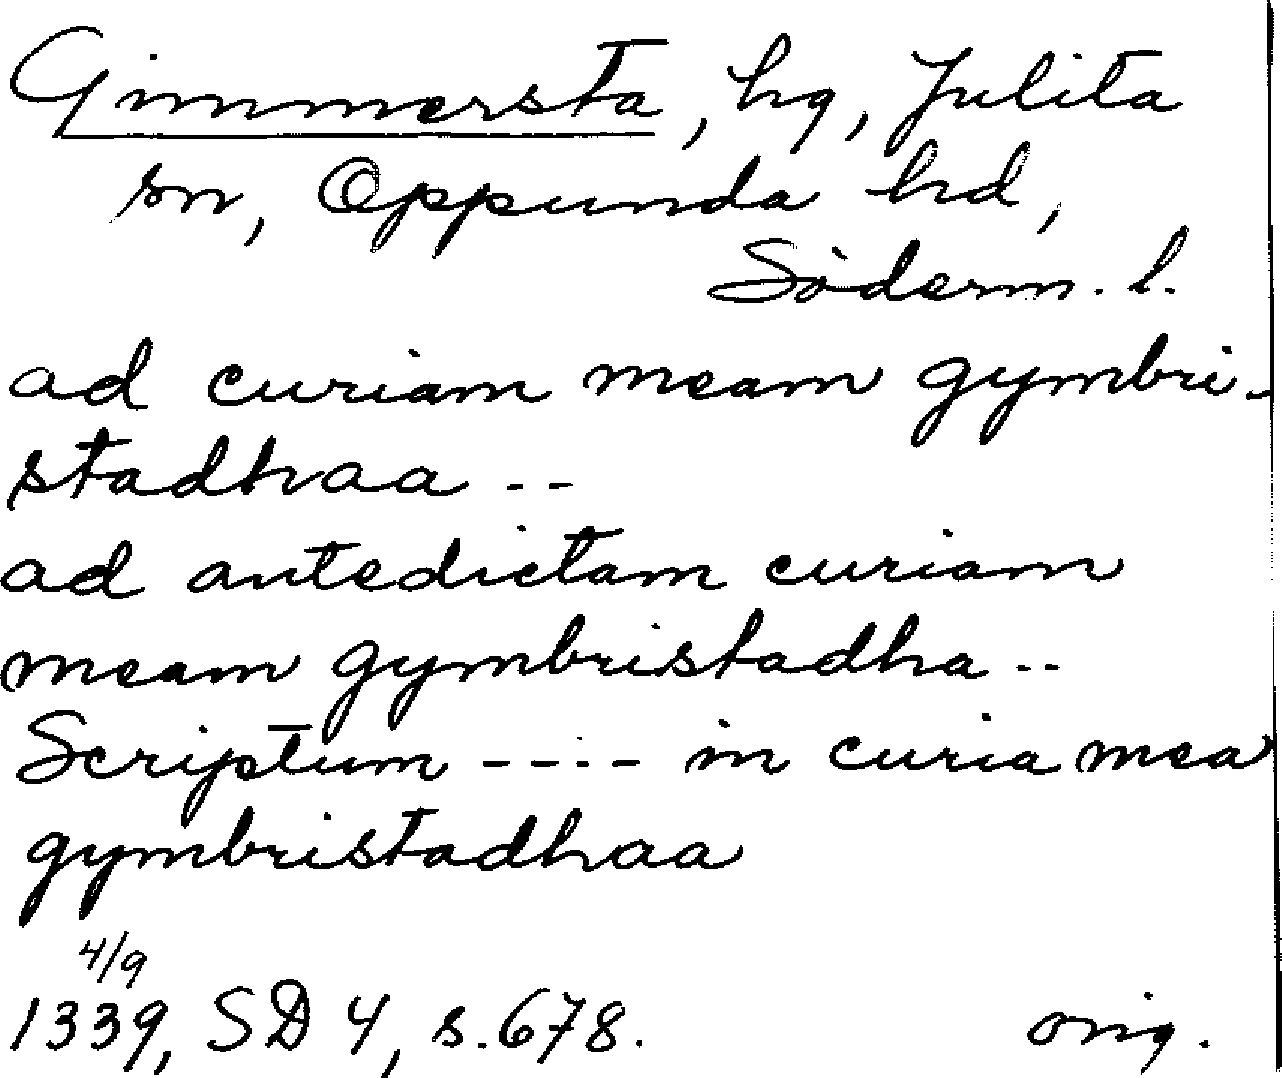 Gimmersta, hg, Julita
sn, Oppunda hd,
Söderm. l.
ad curiam meam gymbri-
stadhaa --
ad antedictam curiam
meam gymbristadha --
Scriptum ---- in curia mea
gymbristadhaa
4/9
1339, SD 4, s. 678. orig.